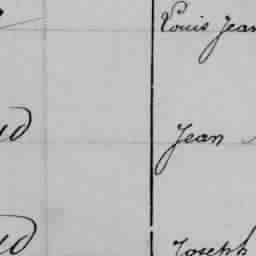 Louis Jean
ud Jean
ud Joseph